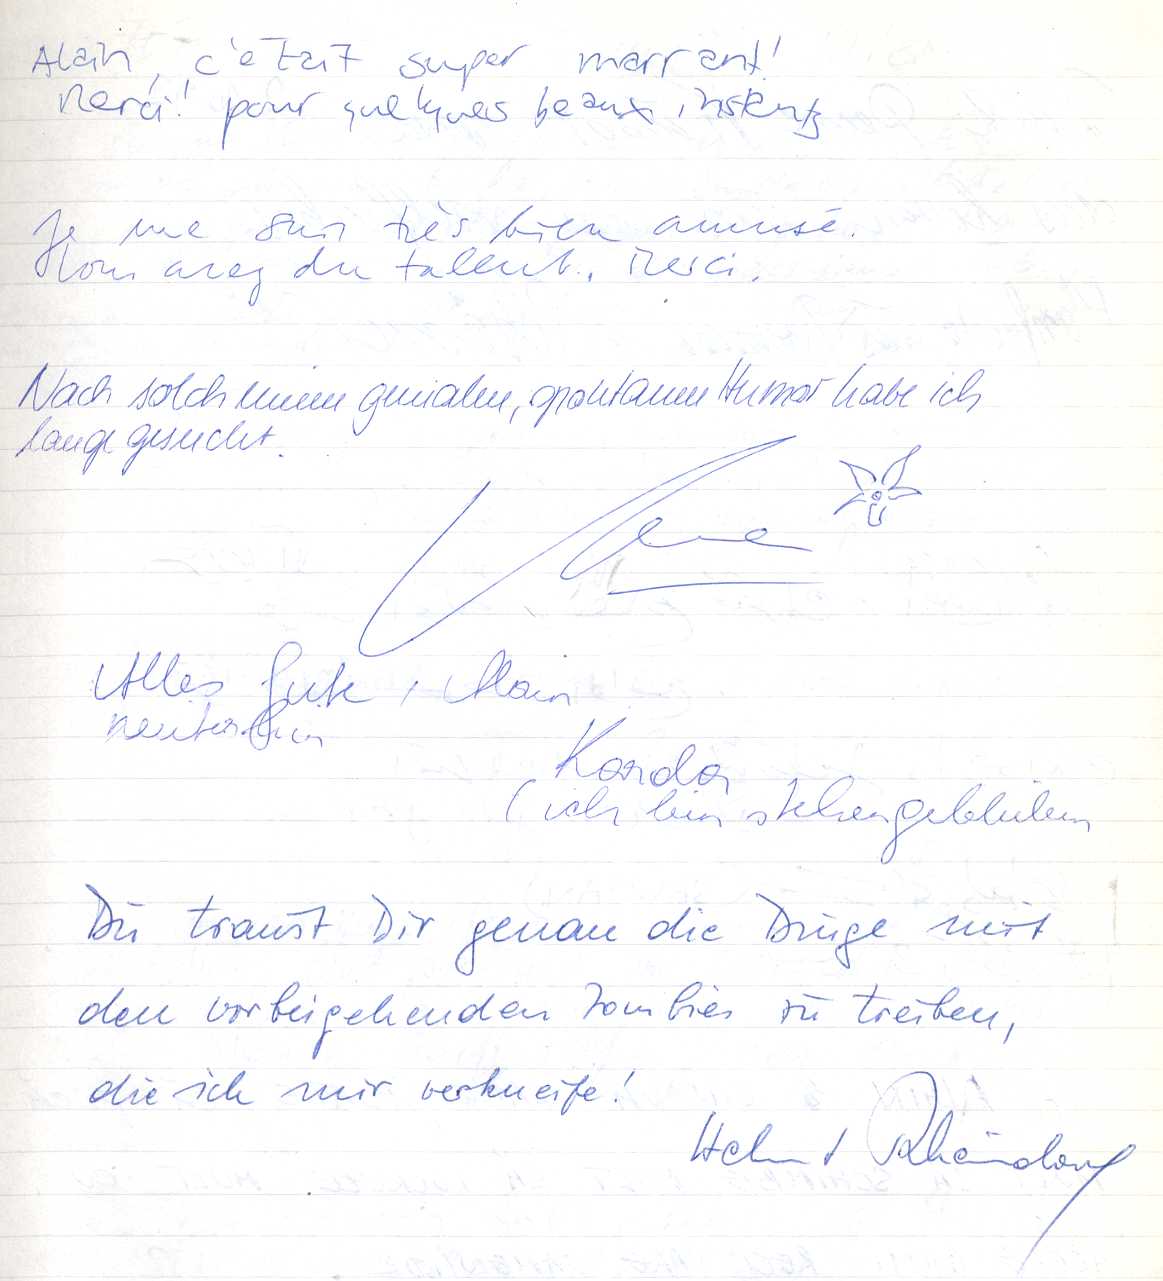 Alain, c'était super marrant!
Merci! pour quelques beaux instants
Je me suis très bien amusé.
Vous avez du talent. Merci.
Nach solch einem genialen, spontanen Humor habe ich
lange gesucht.
Alles Gute, Alain
weiterhin
(ich bin stehengeblieben
Du traust Dir genau die Dinge mit
den vorbeigehenden Zombies zu treiben,
die ich mir verkneife!
Helmut